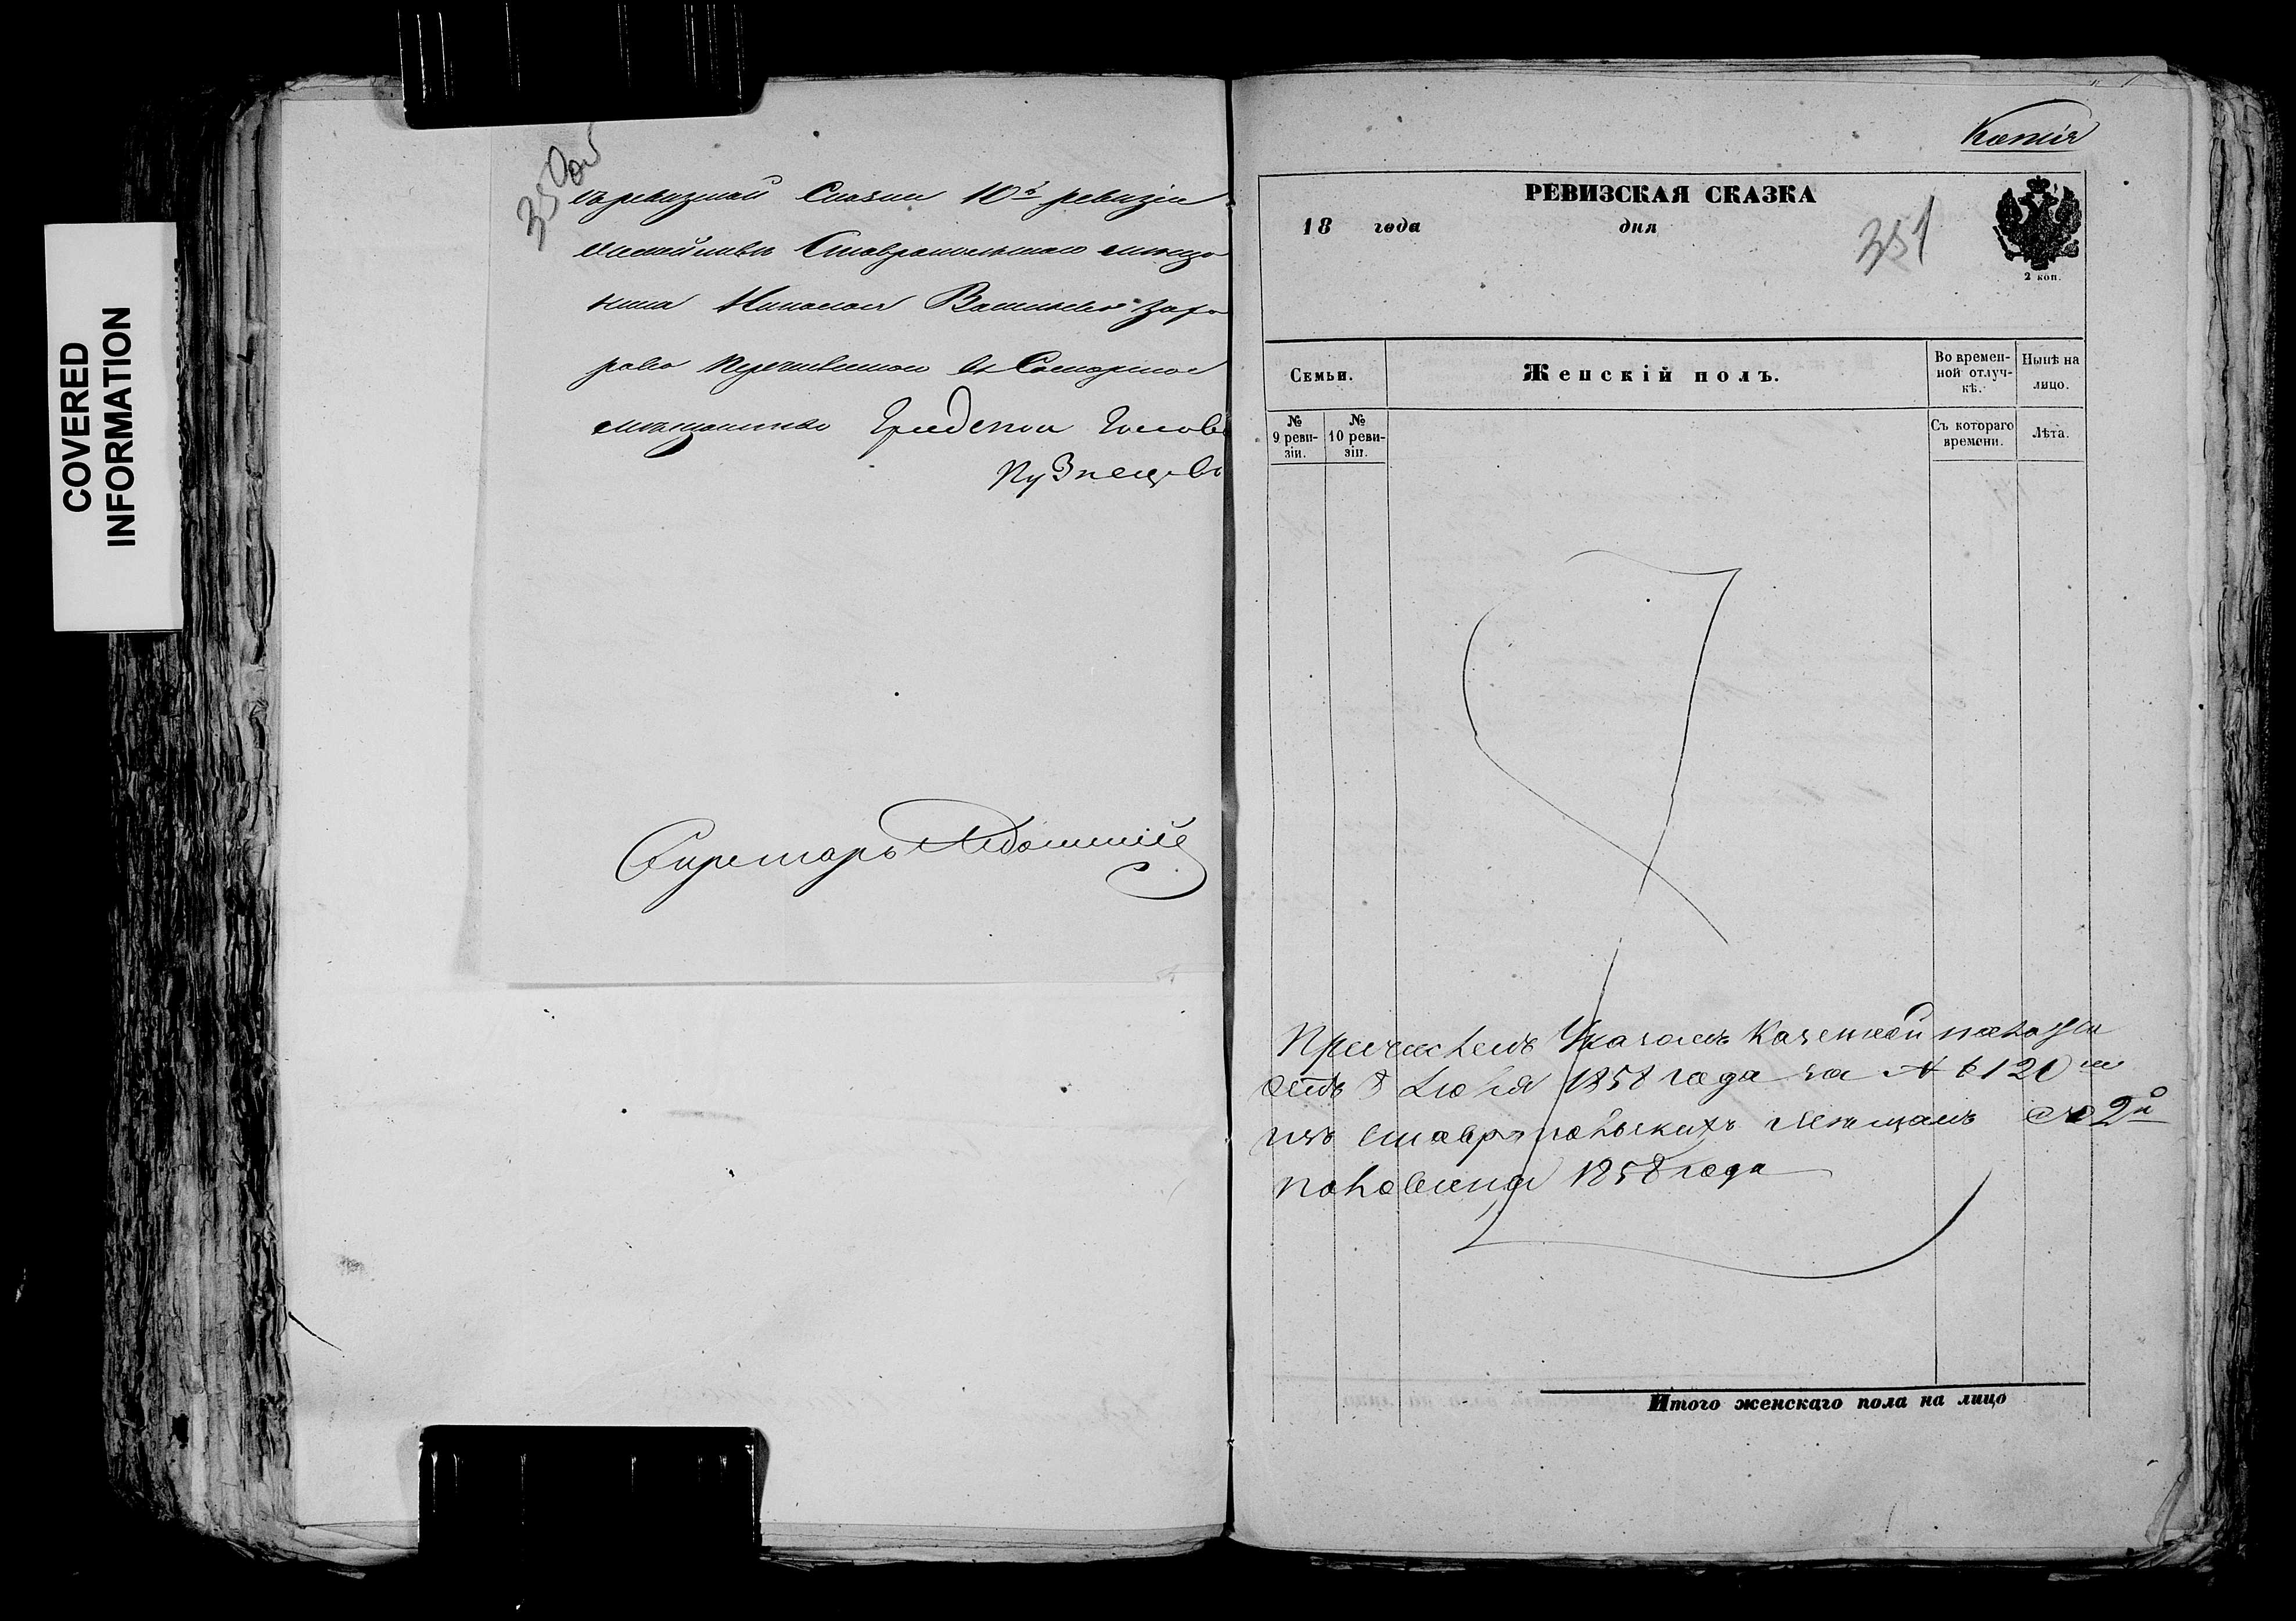 COVERED
INFORMATION
350 об
къ ревизской Сказки 10й ревизіи
семейства Ставропольскаго мѣща
нина Николая Васильева Заха
рова перечисленнаго въ Самарское
мѣщанство Градской Голова
Кузнецовъ
Секретарь
Копія
РЕВИЗСКАЯ СКАЗКА
18 года дня
351
2 коп.
Семьи.
Женскій полъ.
Во времен-
ной отлуч-
кѣ.
Нынѣ на
лицо.
№
9 реви-
зіи.
№
10 реви-
зіи.
Съ котораго
времени.
Лѣта.
Причисленъ Указомъ Казенной палаты
отъ 8 Июля 1858 года за № 6120м
изъ Ставропольскихъ Мѣщанъ со 2й
половины 1858 года
Итого женскаго пола на лицо